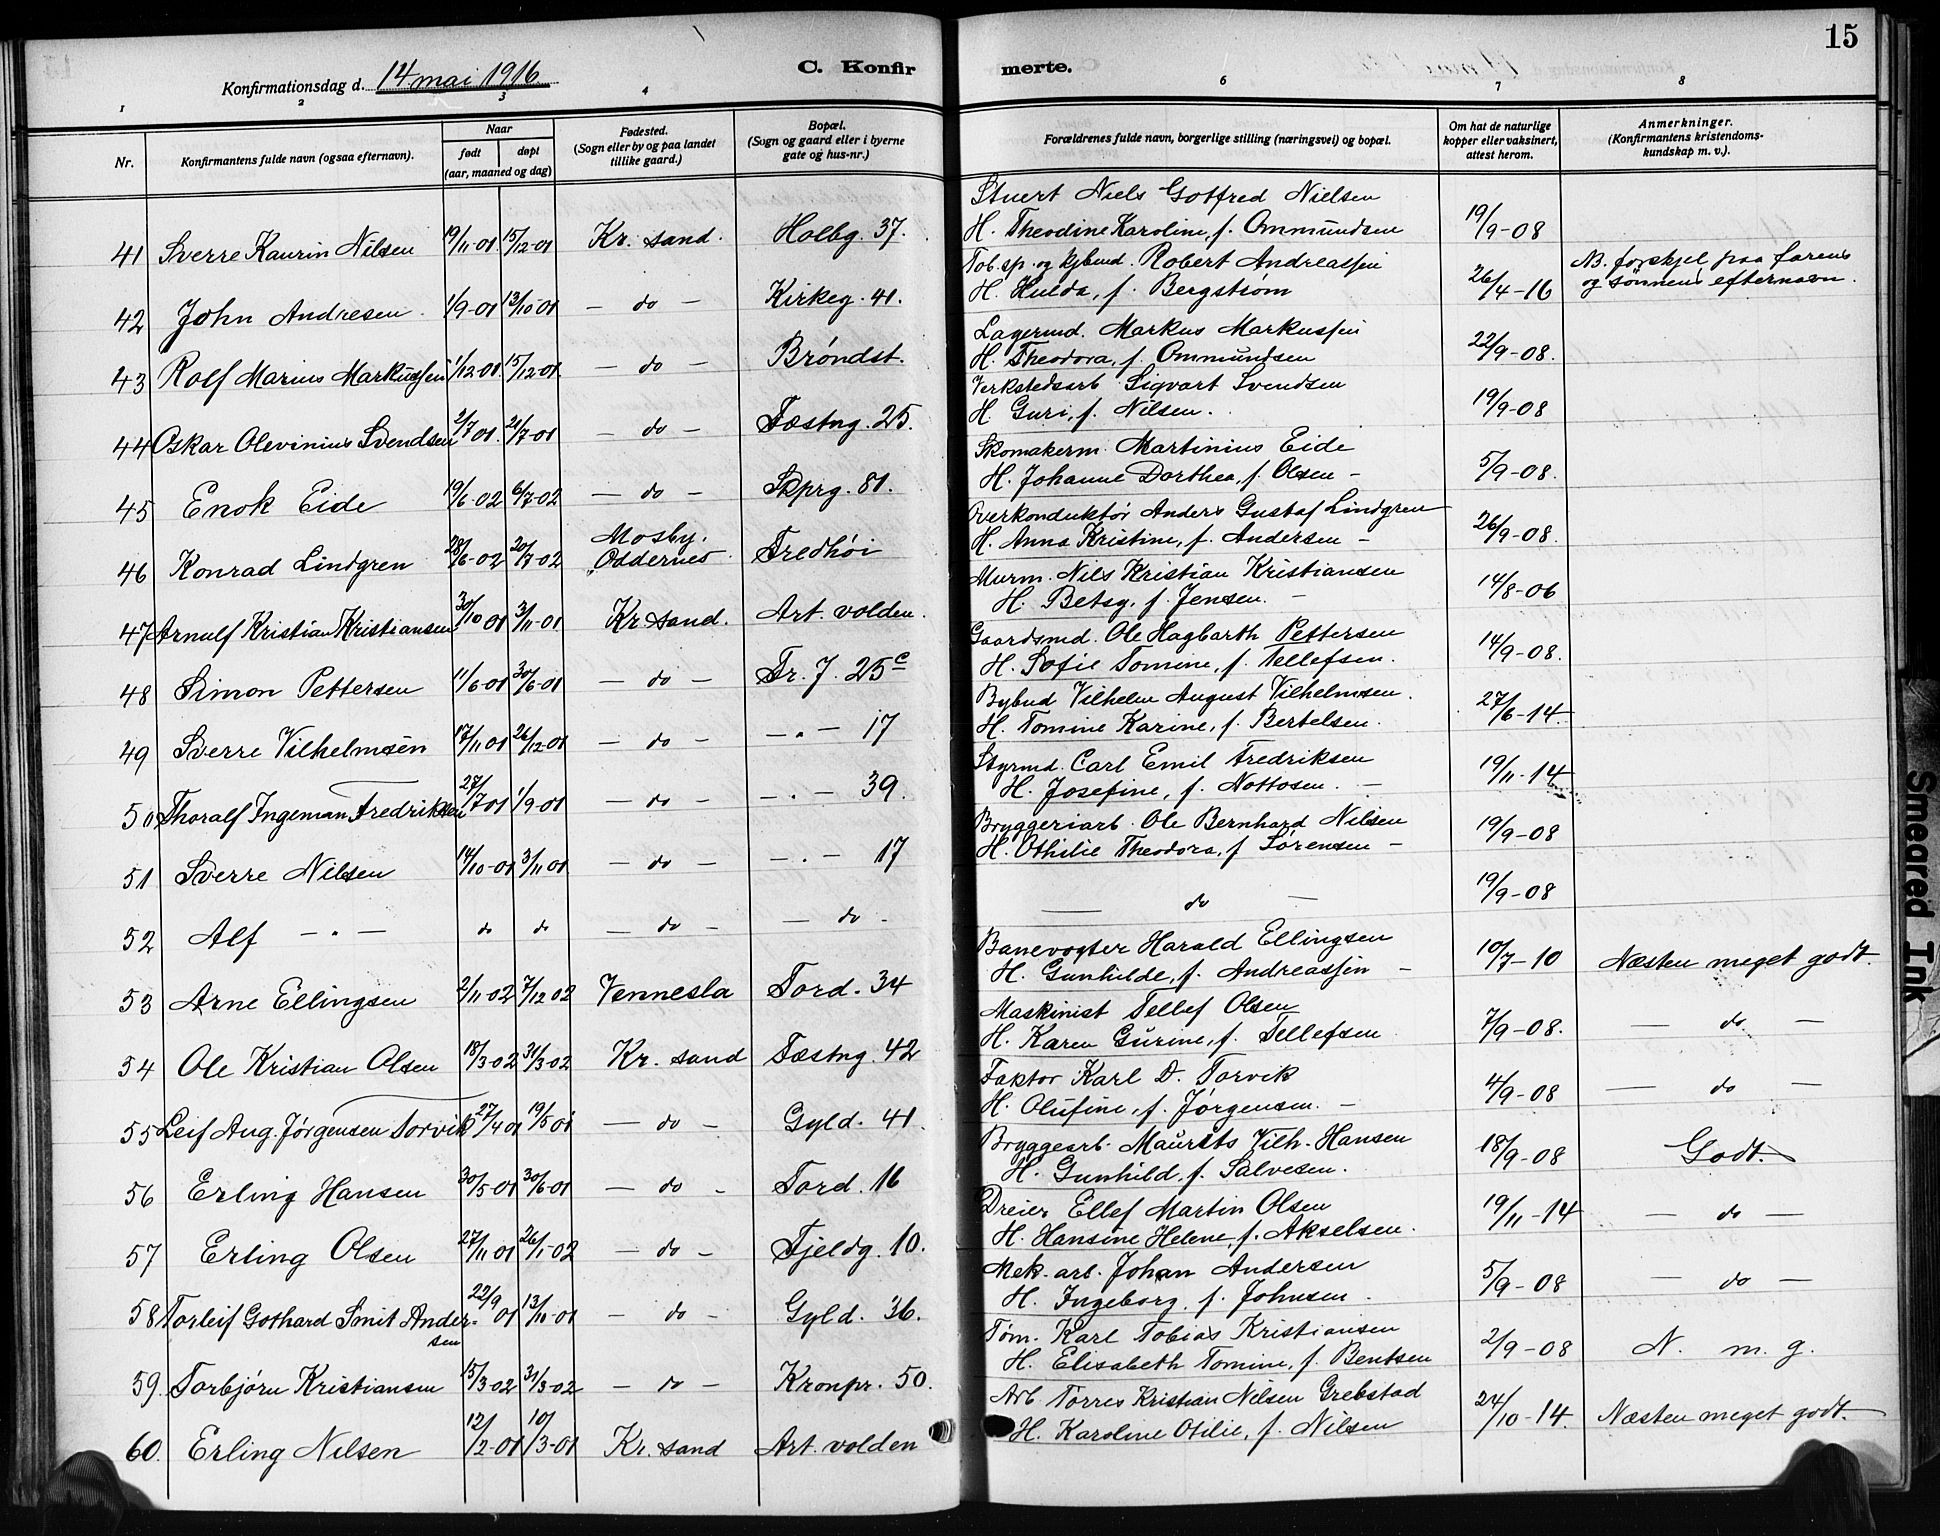 15
Konfirmationsdag d. 14 mai 1916
C. Konfirmerte.
1 2 3 4 6 7 8
Nr. Konfirmantens fulde navn (ogsaa efternavn). Naar født døpt (aar, maaned og dag) Fødested. (Sogn eller by og paa landet tillike gaard.) Bopæl. (Sogn og gaard eller i byerne gate og hus-nr.) Forældrenes fulde navn, borgerlige stilling (næringsvei) og bopæl. Om hat de naturlige kopper eller vaksinert, attest herom. Anmerkninger. (Konfirmantens kristendoms-kundskap m. v.).
Stuert Niels Gotfred Nielsen
41 Sverre Kaurin Nilsen 19/11-01 15/12-01 Kr. sand. Holbg. 37. H. Theodine Karoline, f. Ommundsen 19/9-08
Tob.sp. og kjbmd. Robert Andreassen NB. forskjel paa farens
42 John Andresen 1/9-01 13/10 01 - do - Kirkeg. 41. H. Hulda, f. Bergstrøm 26/4-16 og sønnens efternavn.
Lagermd. Markus Markussen
43 Rolf Marius Markussen 1/12-01 15/12-01 - do - Brøndst. H. Theodora, f. Ommundsen 22/9-08.
Verkstedsarb Sigvart Svendsen
44 Oskar Olevinius Svendsen 2/7 01. 21/7-01 - do - Fæstng. 25. H. Guri, f. Nilsen. 19/9-08
Skomakerm. Martinius Eide
45 Enok Eide 19/6-02 6/7-02 - do - Skprg. 81. H. Johanne Dorthea, f. Olsen - 5/9-08.
Overkonduktør Anders Gustaf Lindgren
46 Konrad Lindgren 28/6-02 20/7-02 Mosby, Oddernes Fredhøi H. Anna Kristine, f. Andersen - 26/9-08.
Murm. Nils Kristian Kristiansen
47 Arnulf Kristian Kristiansen 30/10 01 3/11-01 Kr. sand. Art. volden. H. Betsy, f. Jensen. - 14/8-06
Gaardsmd. Ole Hagbarth Pettersen
48 Simon Pettersen 11/6-01 30/6-01 - do - Tr. J. 25 c H. Sofie Tomine, f. Tellefsen. 14/9-08.
Bybud Vilhelm August Vilhelmsen.
49 Sverre Vilhelmsen 17/11 01 26/12-01 - do - - " - 17 H. Tomine Karine, f. Bertelsen. 27/6-14.
Styrmd. Carl Emil Fredriksen
50 Thoralf Ingeman Fredriksen 27/7 01 1/9-01 - do - - " - 39. H. Josefine, f. Nottosen. - 19/11-14
Bryggeriarb. Ole Bernhard Nilsen
51 Sverre Nilsen 14/10-01 3/11 01 - do - - " - 17 H. Othilie Theodora, f. Sørensen - 19/9-08
52 Alf - " - do do - do - - do - - do - 19/9-08
Banevogter Harald Ellingsen
53 Arne Ellingsen 2/11-02 7/12 02 Vennesla Tord. 34 H. Gunhilde, f. Andreassen - 10/7-10 Næsten meget godt.
Maskinist Tellef Olsen
54 Ole Kristian Olsen 18/3-02 31/3-02 Kr. sand Fæstng. 42 H. Karen Gurine, f. Tellefsen 7/9-08. - do -
Faktor Karl D. Torvik
55 Leif Aug. Jørgensen Torvik 27/4 01 19/5 01 - do - Gyld. 41. H. Olufine, f. Jørgensen. - 4/9-08 - do -
Bryggearb. Maurits Vilh. Hansen
56 Erling Hansen 30/5-01 30/6-01 - do - Tord. 16 H. Gunhild, f. Salvesen. 18/9-08 Godt.
Dreier Ellef Martin Olsen
57 Erling Olsen 27/11 01 26/1-02 - do - Fjeldg. 10. H. Hansine Helene, f. Akselsen. 19/11-14 - do -
Mek. arb. Johan Andersen
58 Torleif Gothard Smit Andersen 22/9 01 13/10-01 - do - Gyld. 36. H. Ingeborg, f. Johnsen. 5/9-08 - do -
Tøm. Karl Tobias Kristiansen
59. Torbjørn Kristiansen 15/3-02 31/3-02 - do - Kronpr. 50. H. Elisabeth Tomine, f. Bentsen 2/9-08 N. m. g.
Arb. Torres Kristian Nilsen Grebstad
60. Erling Nilsen 12/2-01 10/3-01 Kr. sand Art. volden H. Karoline Otilie, f. Nilsen 24/10-14. Næsten meget godt.
Smeared Ink